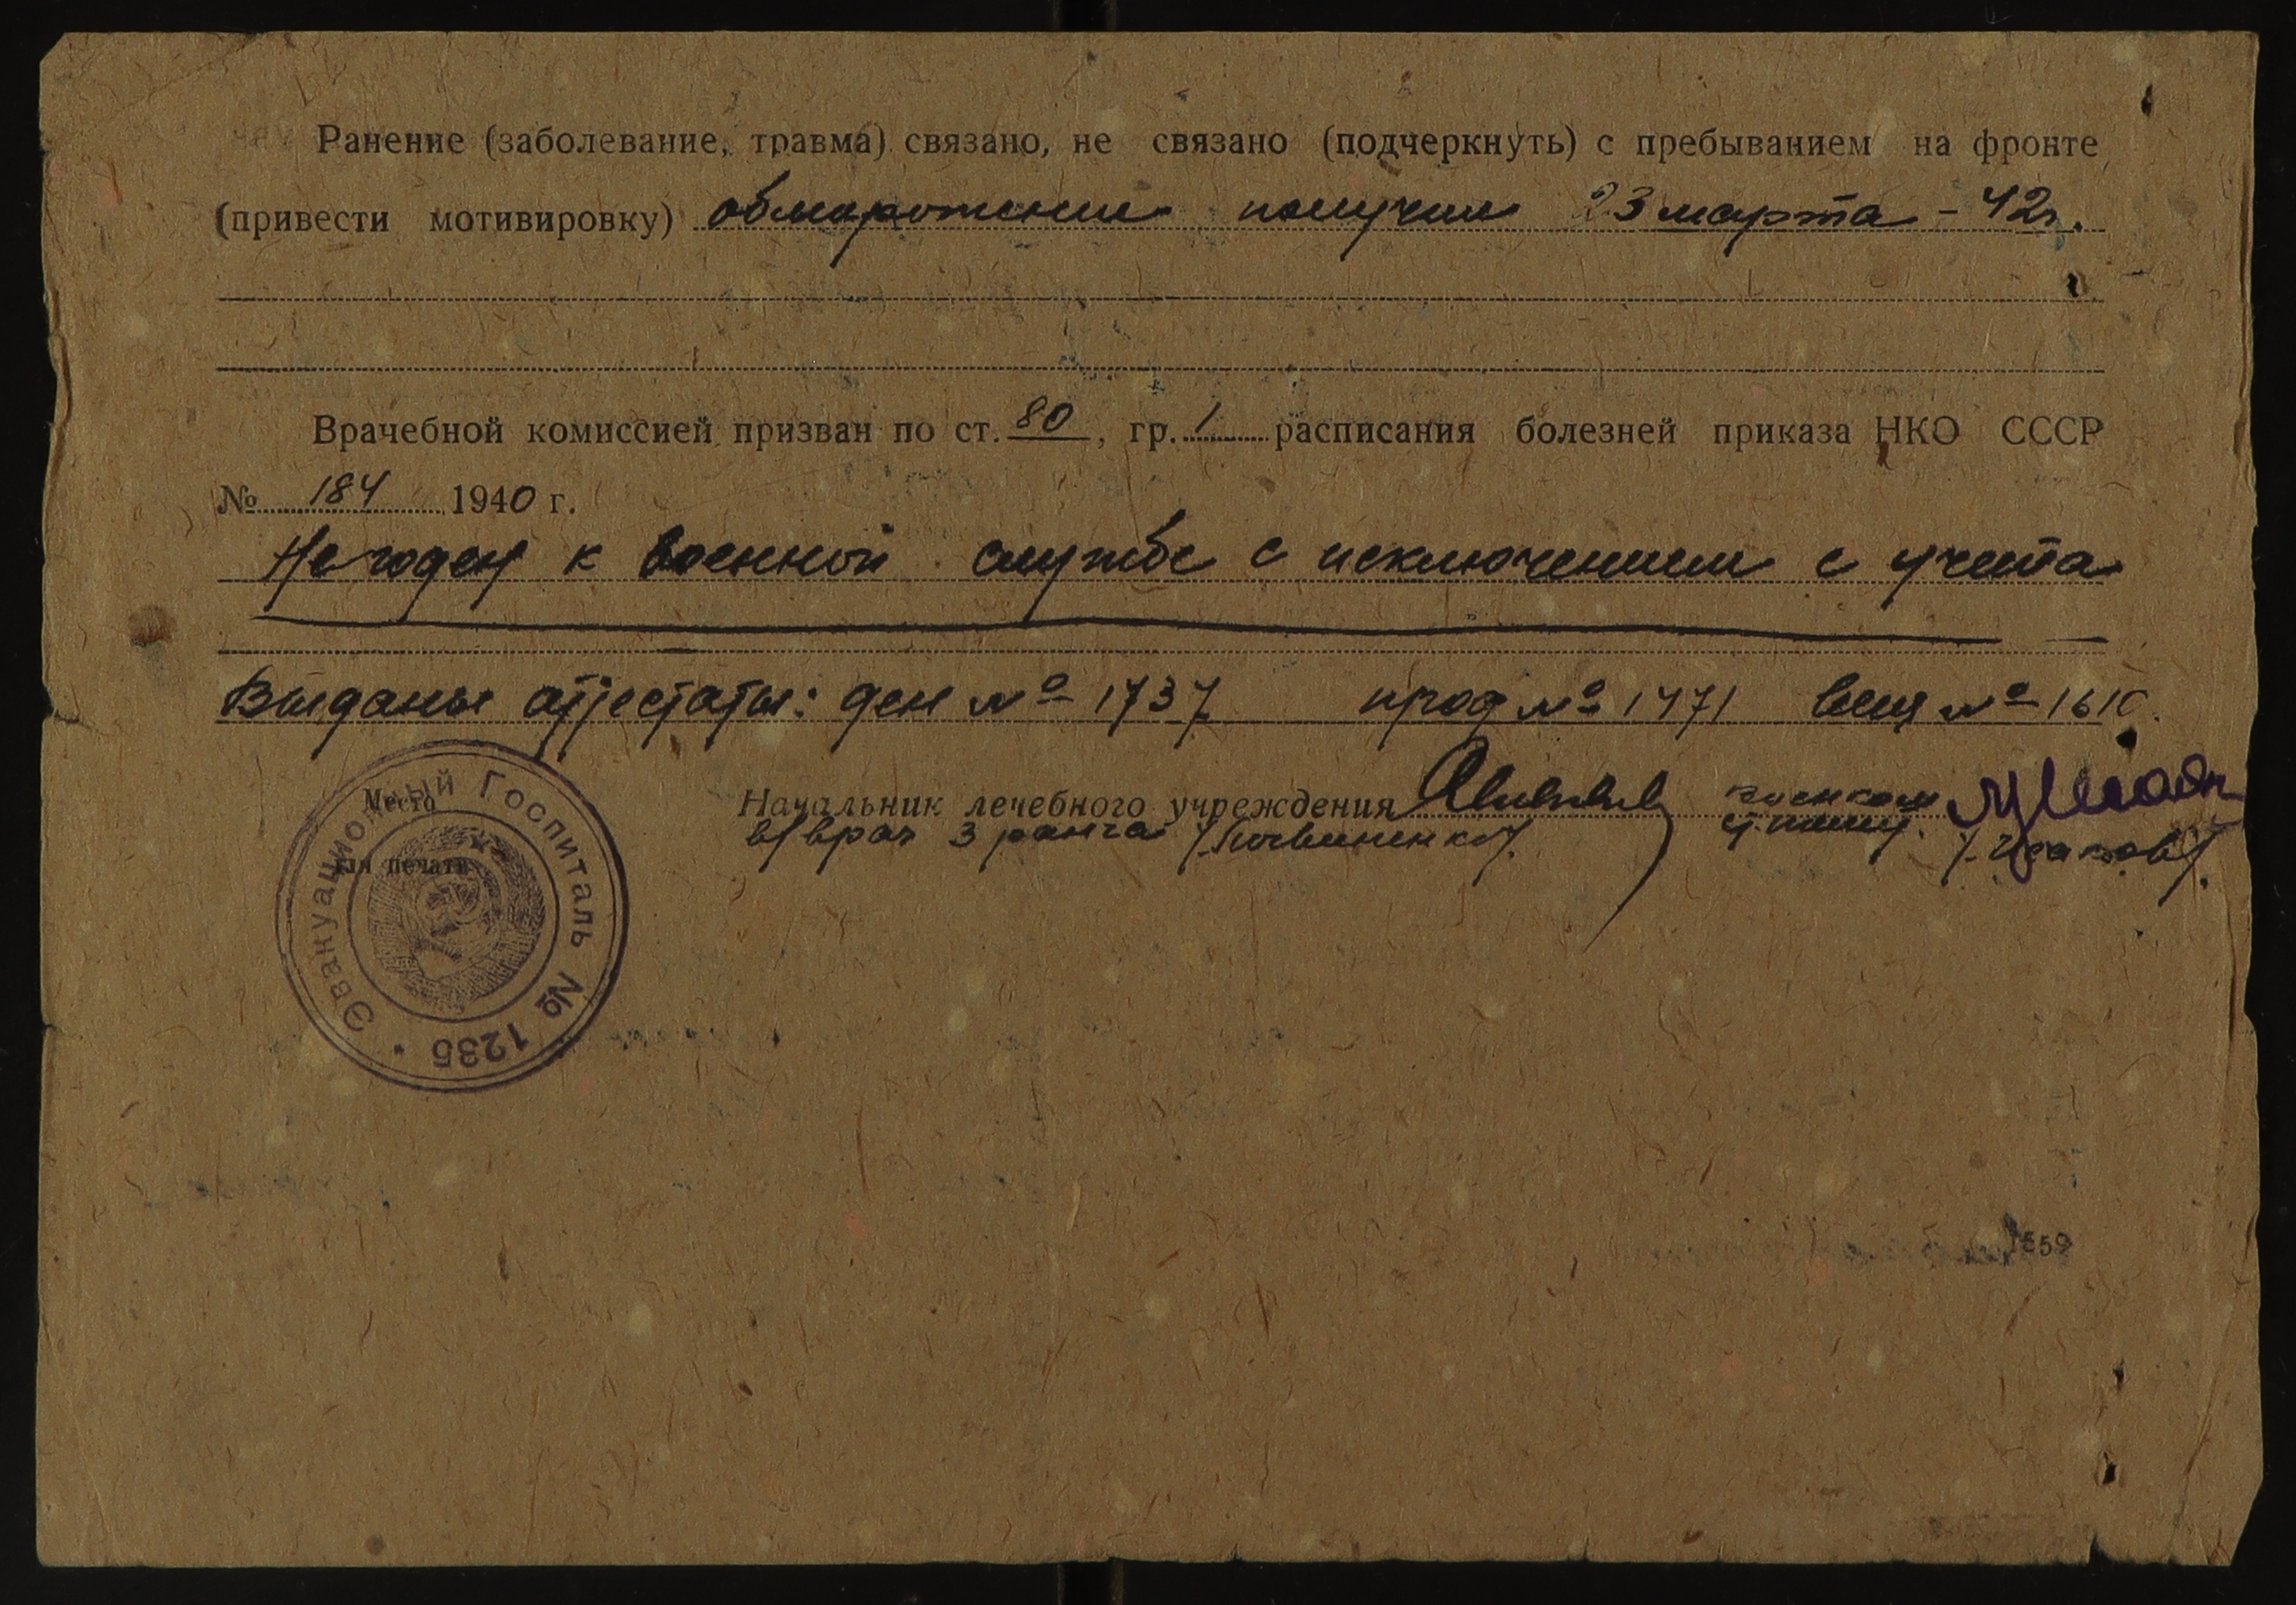 Ранение (заболевание, травма) связано, не связано (подчеркнуть) с пребыванием на фронте
(привести мотивировку) обморожение получил 23 марта - 42г.
Врачебной комиссией призван по ст. 80, гр. 1 расписания болезней приказа НКО СССР
№ 184 1940 г.
Негоден к военной службе с исключением с учета
Выданы аттестаты: ден № 1737 прод № 1471 вещ №
Место
для печати
Эвакуационный Госпиталь № 1235
Начальник лечебного учреждения военком
в/врач 3 ранга
559